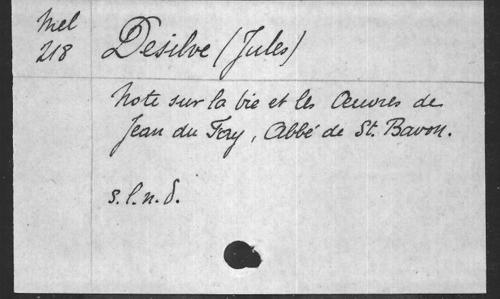 Mel
218
Desilve (Jules)
Note sur la vie et les Œuvres de
Jean du Fay, Abbé de St. Bavon.
s.l.n.d.